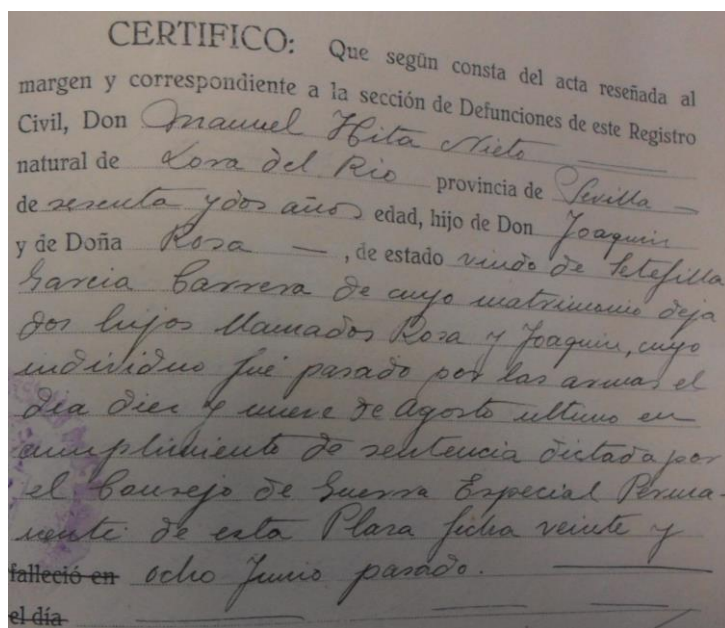 CERTIFICO: Que según consta del acta reseñada al
margen y correspondiente a la sección de Defunciones de este Registro
Civil, Don Manuel Hita Nieto
natural de Lora del Rio provincia de Sevilla
de sesenta y dos años edad, hijo de Don Joaquin
y de Doña Rosa —, de estado viudo de Setefilla
Garcia Carrera de cuyo matrimonio deja
dos hijos llamados Rosa y Joaquin, cuyo
individuo fué pasado por las armas el
dia diez y nueve de Agosto ultimo en
cumplimiento de sentencia dictada por
el Consejo de Guerra Especial Perma
nente de esta Plaza ficha veinte y
falleció en ocho Junio pasado.
el día